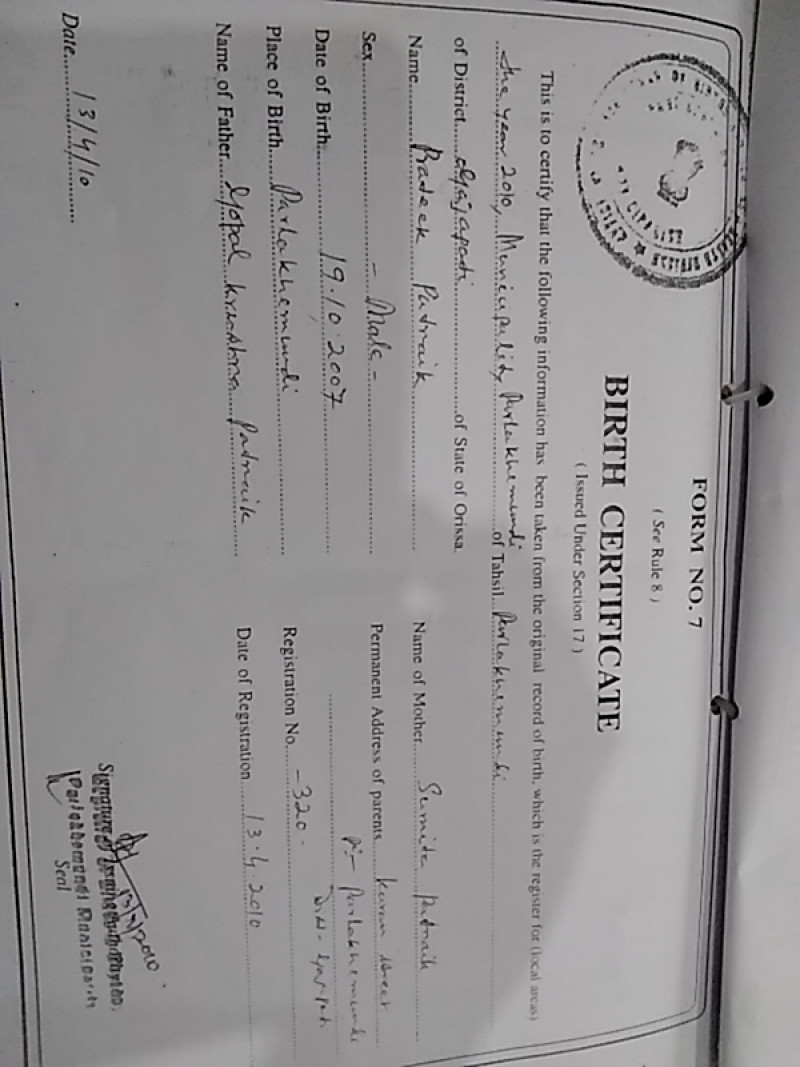 FORM NO. 7
( See Rule 8 )
BIRTH CERTIFICATE
( Issued Under Section 17 )
This is to certify that the following information has been taken from the original record of birth, which is the register for (local areas)
the year 2010, Municipality Parlakhemundi of Tahsil Parlakhemundi
of District Gajapati of State of Orissa.
Name Pradeek Patnaik
Sex - Male -
Date of Birth 19.10.2007
Place of Birth Parlakhemundi
Name of Father Gopal Krushna Patnaik
Name of Mother Sumita Patnaik
Permanent Address of parents Karan Street
Parlakhemundi
Dist - Gajapati
Registration No. - 320 -
Date of Registration 13.4.2010
Date 13/4/10
Signature of
Parlakhemundi Municipality
Seal